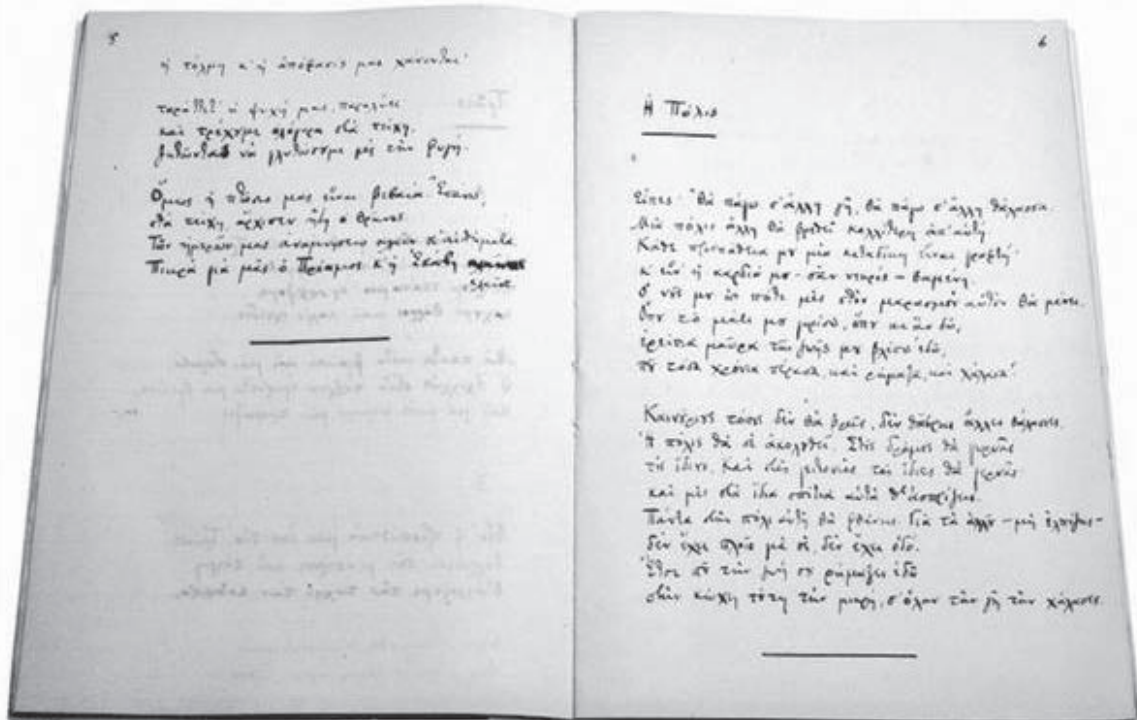 5
ἡ τόλμη κ' ἡ ἀπόφασίς μας χάνονται·
ταράττετ' ἡ ψυχή μας, παραλύει·
καὶ τρέχουμε ολόγυρα στὰ τείχη,
ζητῶντας νὰ γλυτώσουμε μὲ τὴν φυγή.
Ὅμως ἡ πτῶσις μας εἶναι βεβαία. Ἐπάνω,
στὰ τείχη, ἄρχισεν ἤδη ὁ θρῆνος.
Τῶν ἡμερῶν μας ἀναμνήσεις κλαῖν κ' αἰσθήματα.
Πικρὰ γιὰ μᾶς ὁ Πρίαμος κ' ἡ Ἑκάβη
κλαῖνε.
6
Η Πόλις
Εἶπες· "Θὰ πάγω σ' ἄλλη γῆ, θὰ πάγω σ' ἄλλη θάλασσα.
Μιὰ πόλις ἄλλη θὰ βρεθεῖ καλλίτερη ἀπ' αὐτή.
Κάθε προσπάθεια μου μιὰ καταδίκη εἶναι γραφτή·
κ' εἶν' ἡ καρδιά μου - σὰν νεκρός - θαμένη.
Ὁ νοῦς μου ὡς πότε μὲς στὸν μαρασμὸν αὐτὸν θὰ μένει.
Ὅπου τὸ μάτι μου γυρίσω, ὅπου κι ἂν δῶ,
ἐρείπια μαῦρα τῆς ζωῆς μου βλέπω ἐδῶ,
ποὺ τόσα χρόνια πέρασα, καὶ ρήμαξα, καὶ χάλασα"
Καινούριους τόπους δὲν θὰ βρεῖς, δὲν θἄβρεις ἄλλες θάλασσες.
Ἡ πόλις θὰ σὲ ἀκολουθεῖ. Στοὺς δρόμους θὰ γυρνᾶς
τοὺς ἴδιους. Καὶ στὲς γειτονιὲς τὲς ἴδιες θὰ γερνᾶς·
καὶ μὲς στὰ ἴδια σπίτια αὐτὰ θ' ἀσπρίζεις.
Πάντα στὴν πόλι αὐτὴ θὰ φθάνεις. Γιὰ τὰ ἀλλοῦ - μὴ ἐλπίζεις -
δὲν ἔχει πλοῖο γιὰ σέ, δὲν ἔχει ὁδό.
Ἔτσι ποὺ τὴν ζωή σου ρήμαξες ἐδῶ
στὴν κώχη τούτη τὴν μικρή, σ' ὅλην τὴν γῆ τὴν χάλασες.